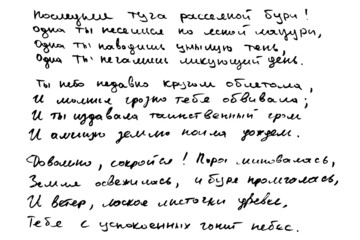 Последняя туча рассеянной бури!
Одна ты несёшься по ясной лазури,
Одна ты наводишь унылую тень,
Одна ты печалишь ликующий день.
Ты небо недавно кругом облегала,
И молния грозно тебя обвивала;
И ты издавала таинственный гром
И алчную землю поила дождем.
Довольно, сокройся! Пора миновалась,
Земля освежилась, и буря промчалась,
И ветер, лаская листочки древес,
Тебя с успокоенных гонит небес.